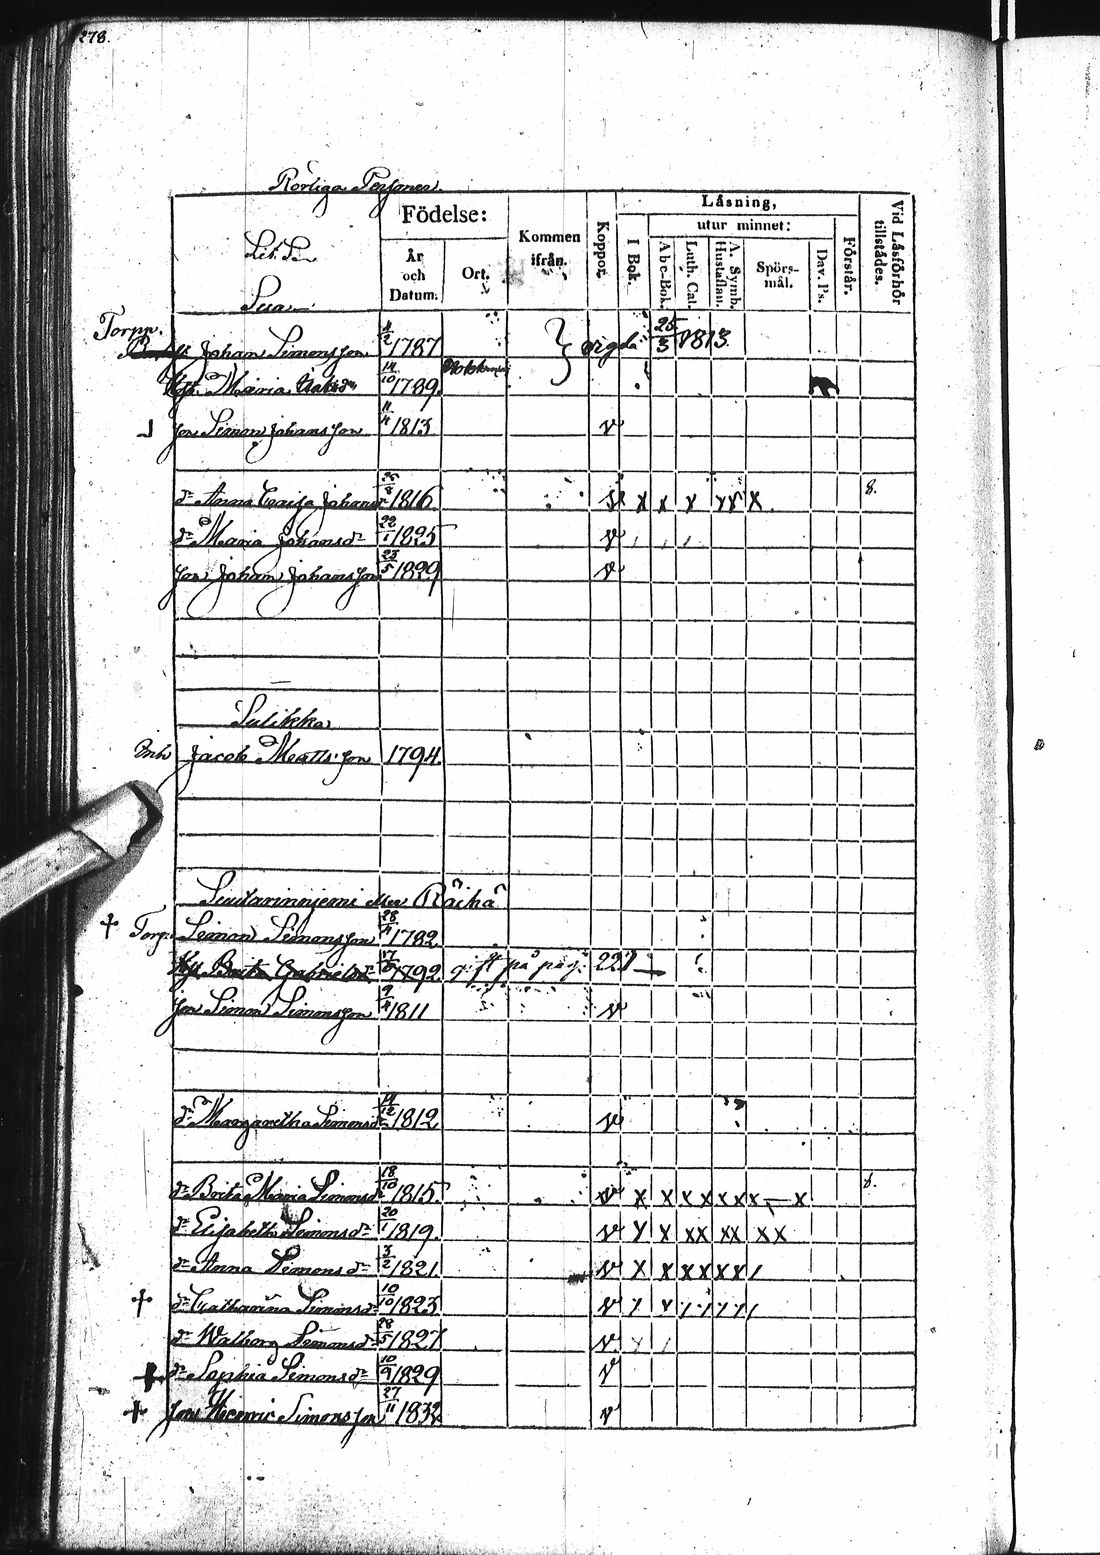 278.
Rörliga Personer
Födelse:
Kommen ifrån.
Koppor.
Läsning,
utur minnet:
År och Datum.
Ort.
I Bok.
Abc-Bok.
Luth. Cat.
A. Symb. Hustaflan.
Spörsmål.
Dav. Ps.
Förstår.
Vid Läsförhör tillstädes.
Torpp. Johan Simonsson 4/2 1787 } vigde 25/3 1813
Hust. Maria 14/10 1789.
son Simon Johansson 11/4 1813 v
dr Anna Caisa Johansdr 1816 x x x x x x 8.
dr Maria Johansdr 22/1 1825 v
son Johan Johansson 23/5 1829 v
Sulikka
Inh Jacob Mattsson 1794.
Räihä
† Torp. Simon Simonsson 28/4 1782
Hust Brita Gabrielsdr 1792 gift på pag. 221
son Simon Simonsson 9/4 1811 v
dr Margaretha Simonsdr 14/12 1812 v
dr Brita Maria Simonsdr 18/10 1815 v x x x x x x x — x 8.
dr Elisabeth Simonsdr 20/1 1819. v x x xx xx xx
dr Anna Simonsdr 3/2 1821. v x x x x x x /
† dr Catharina Simonsdr 10/10 1823 v
dr Walborg Simonsdr 28/5 1827 v
† dr Sophia Simonsdr 10/9 1829 v
† son Henric Simonsson 27/11 1832 v